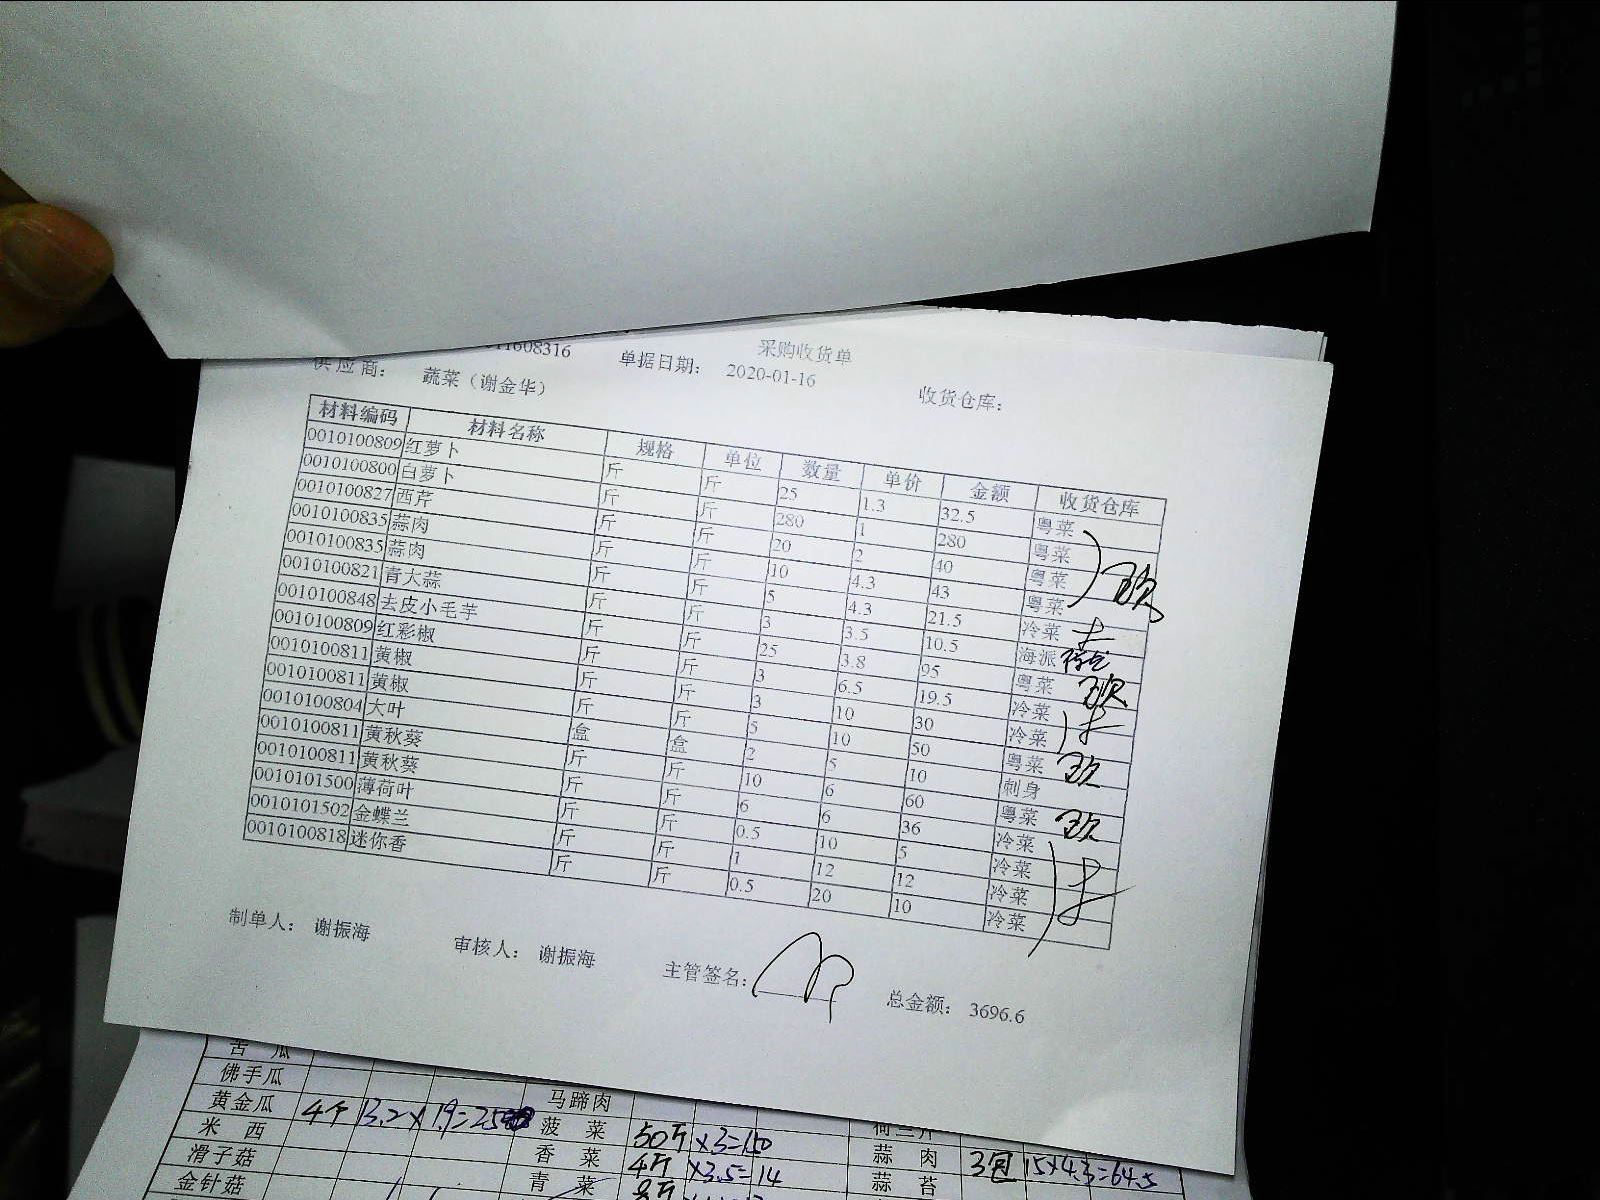 采购收货单
11608316 单据日期: 2020-01-16 收货仓库:
供应商: 蔬菜（谢金华）
材料编码 材料名称 规格 单位 数量 单价 金额 收货仓库
0010100809 红萝卜 斤 斤 25 1.3 32.5 粤菜
0010100800 白萝卜 斤 斤 280 1 280 粤菜
0010100827 西芹 斤 斤 20 2 40 粤菜
0010100835 蒜肉 斤 斤 10 4.3 43 粤菜
0010100835 蒜肉 斤 斤 5 4.3 21.5 冷菜
0010100821 青大蒜 斤 斤 3 3.5 10.5 海派
0010100848 去皮小毛芋 斤 斤 25 3.8 95 粤菜
0010100809 红彩椒 斤 斤 3 6.5 19.5 冷菜
0010100811 黄椒 斤 斤 3 10 30 冷菜
0010100811 黄椒 斤 斤 5 10 50 粤菜
0010100804 大叶 盒 盒 2 5 10 刺身
0010100811 黄秋葵 斤 斤 10 6 60 粤菜
0010100811 黄秋葵 斤 斤 6 6 36 冷菜
0010101500 薄荷叶 斤 斤 0.5 10 5 冷菜
0010101502 金蝶兰 斤 斤 1 12 12 冷菜
0010100818 迷你香 斤 斤 0.5 20 10 冷菜
制单人: 谢振海 审核人: 谢振海 主管签名: 总金额: 3696.6
苦瓜
佛手瓜 马蹄肉
黄金瓜 4个 13.2×1.9= 菠菜 50斤 ×3=150
米西 香菜 4斤 ×3.5=14 蒜肉 3包 15×4.3=64.5
滑子菇 青菜 蒜苔
金针菇